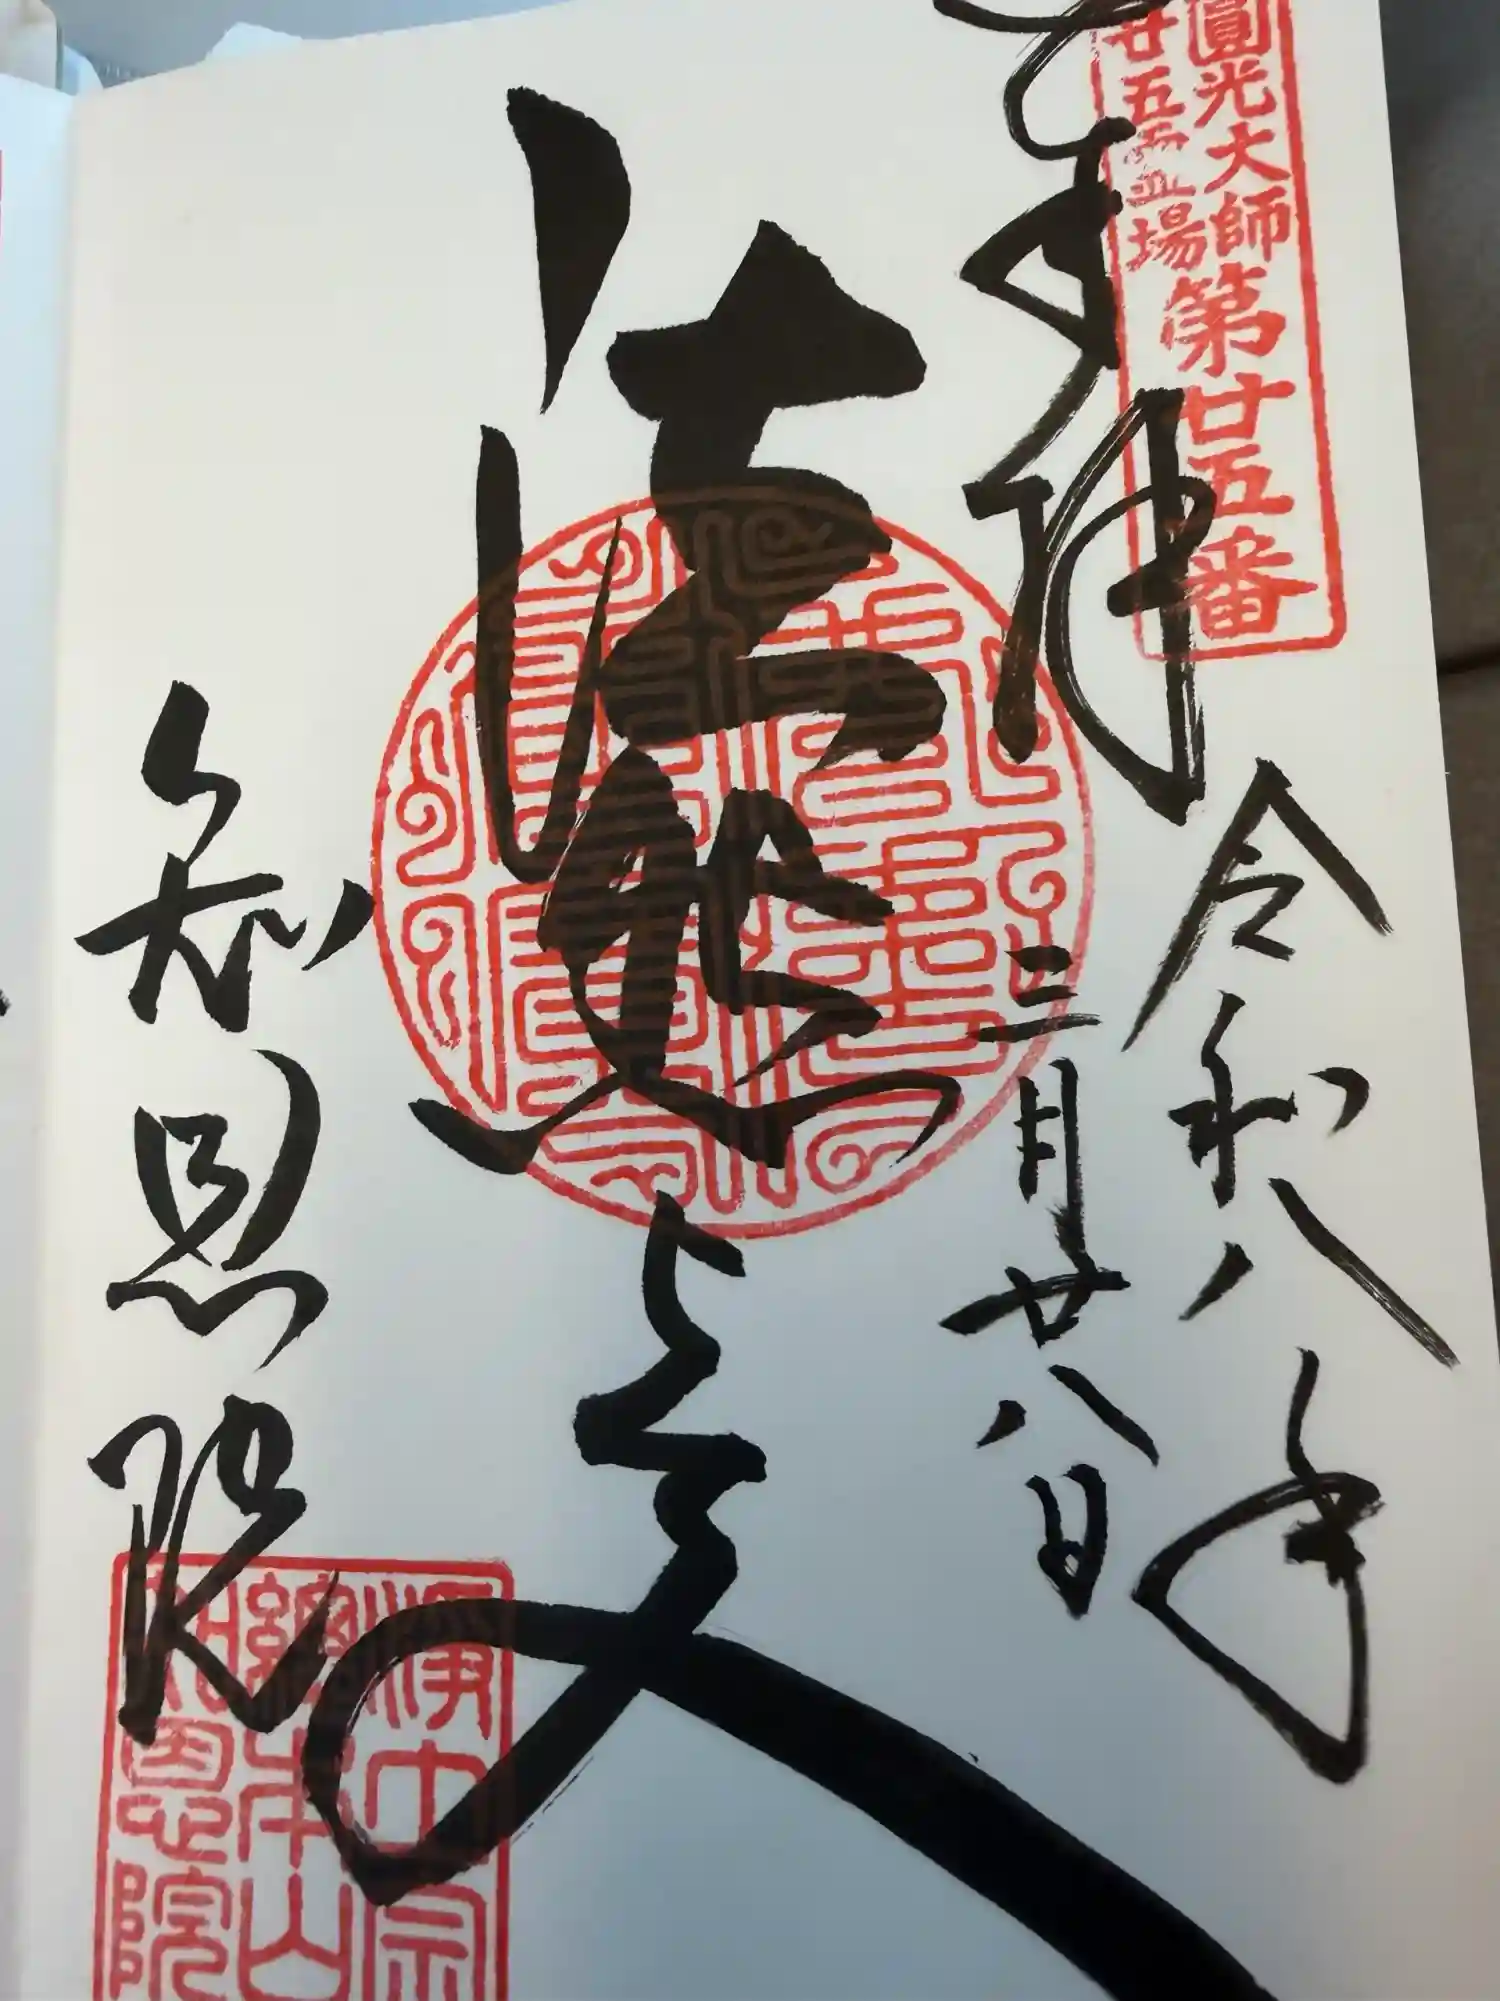 圓光大師
廿五霊場
第廿五番
奉拝
令和八年
三月廿八日
法然上人
知恩院
浄土宗
總本山
知恩院